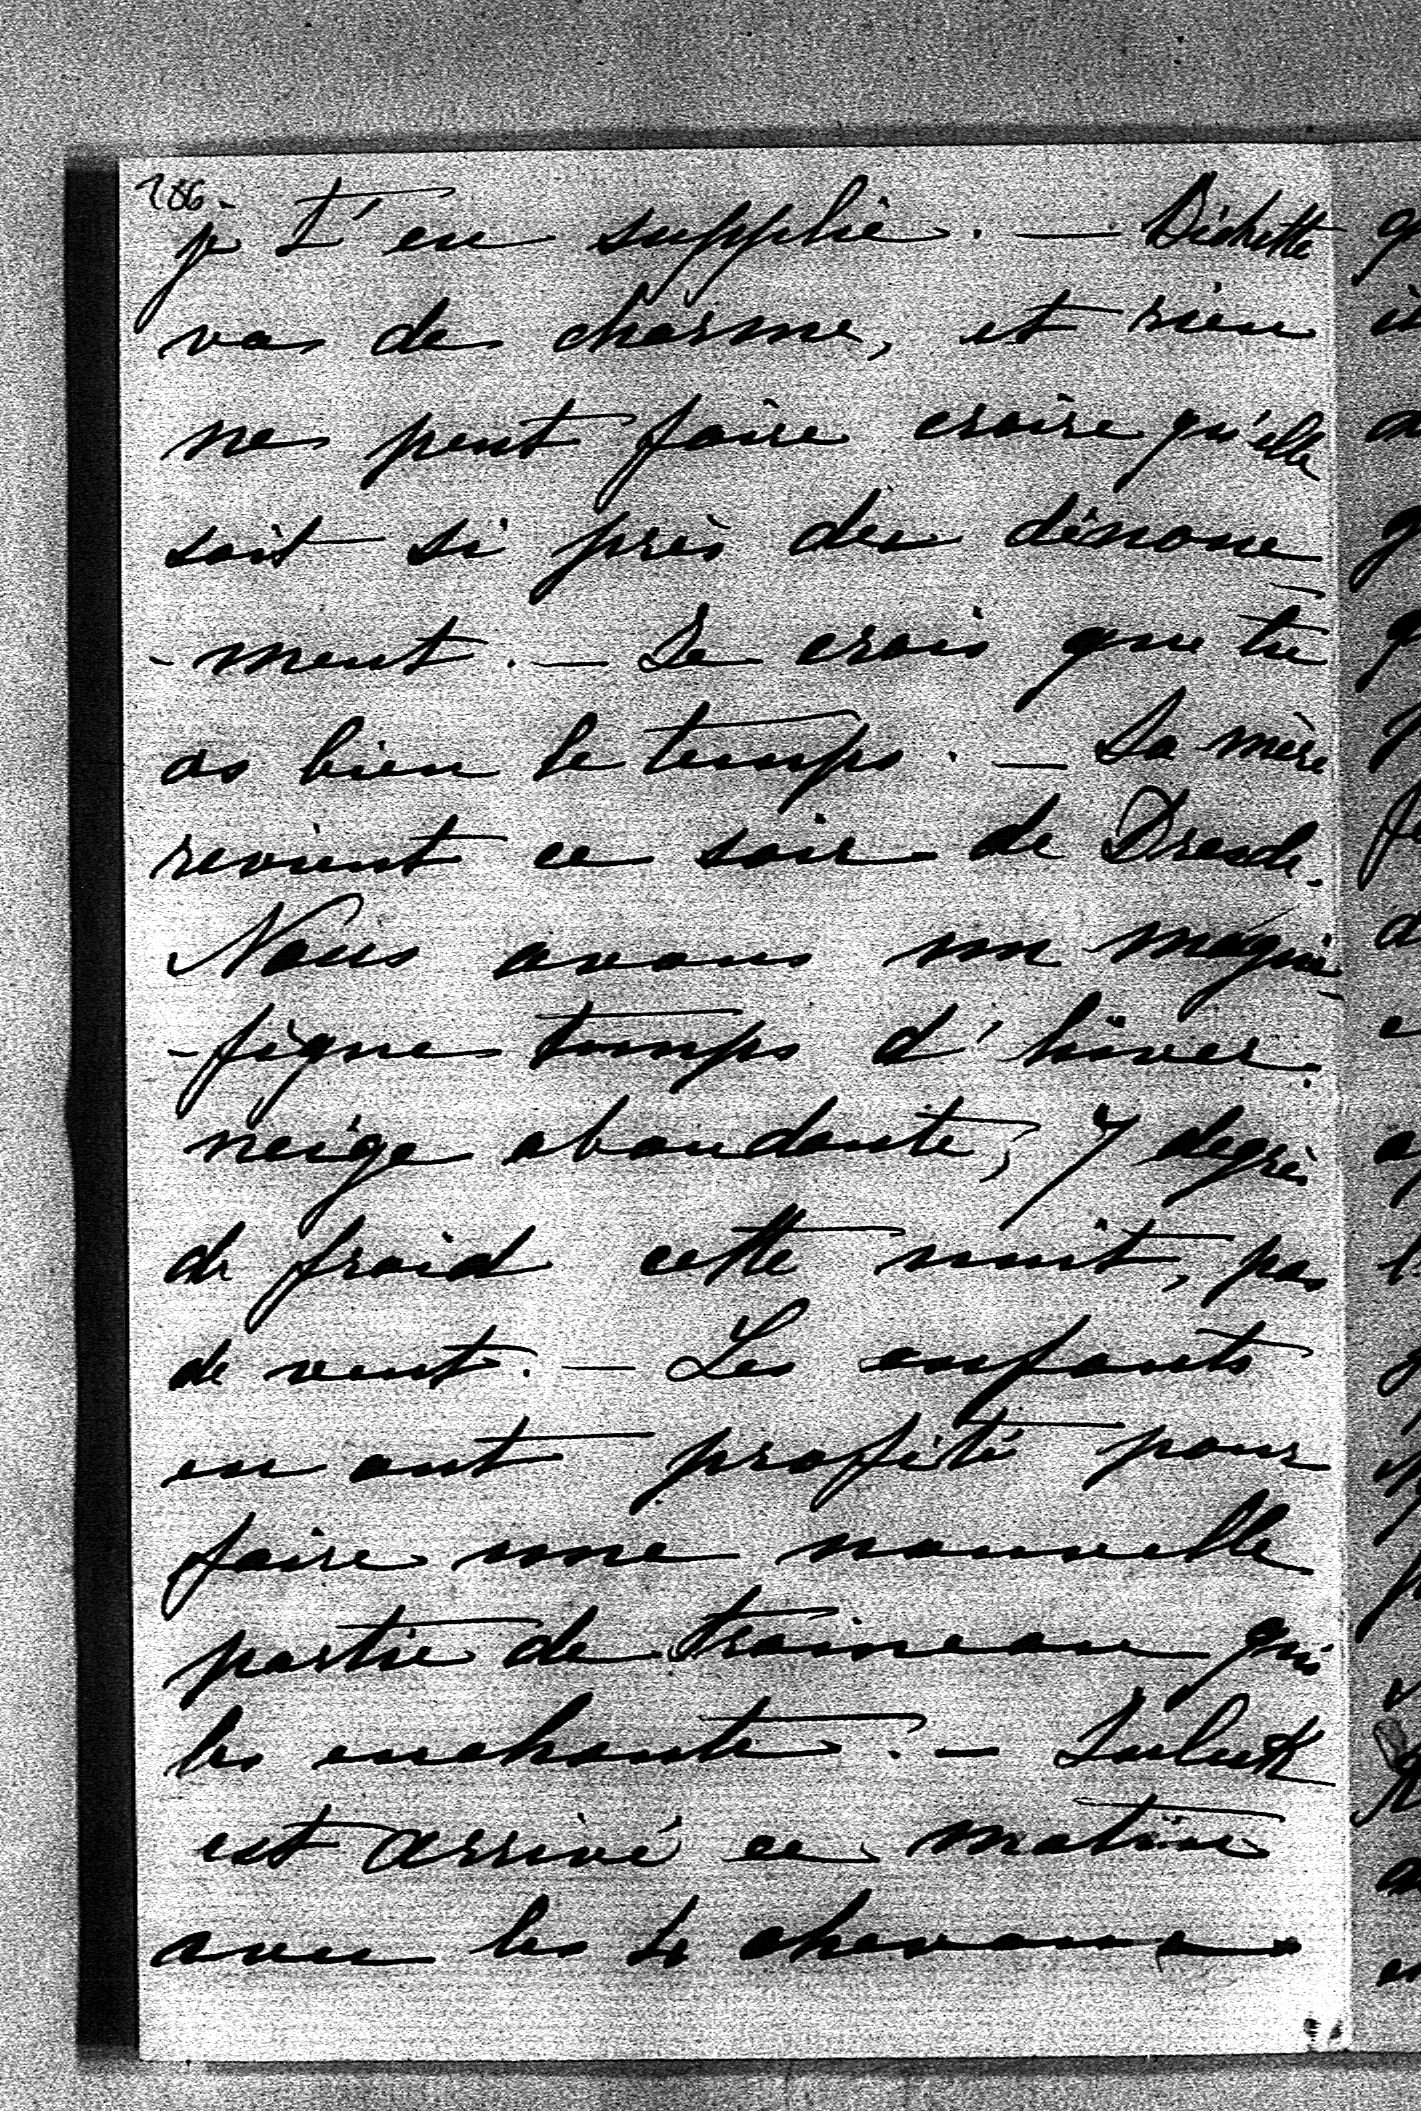 186-
je t'en supplie. — Dédette
va de charme, et rien
ne peut faire croire qu'elle
soit si près du dénoue-
-ment. — Je crois que tu
as bien le temps. — La mère
revient ce soir de Dresde.
Nous avons un magni-
-fique temps d'hiver:
neige abondante, 7 degrés
de froid cette nuit, pas
de vent. — Les enfants
en ont profité pour
faire une nouvelle
partie de traineau qui
les enchante. —
est arrivé ce matin
avec les 4 chevaux